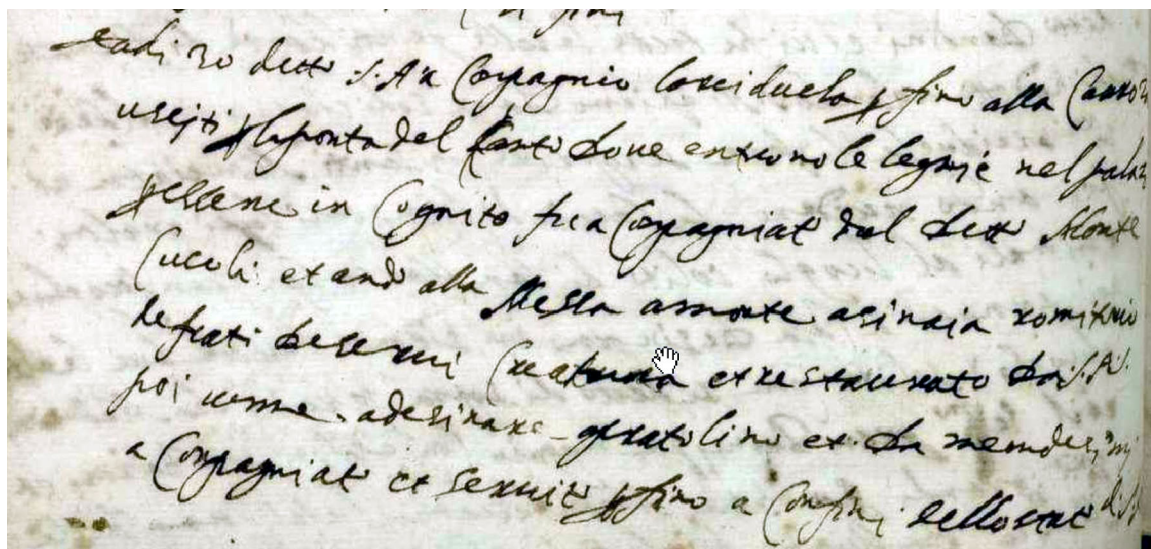 et adi 30 detto S.A.a Conpagnio l'arciduca p fino alla Carroz
usciti p la porta del canto dove entrono le legnie nel palaz
p essere in Cognito fu a Conpagniato dal detto Monte
Cucoli et andò alla Messa a monte asinaia romitorio
de frati de servi Creatura et restaurato da S.A.S.
poi venne a desinare a pratolino et da medesimi
a Conpagniato et servito p fino a Confini dello stato di S.A